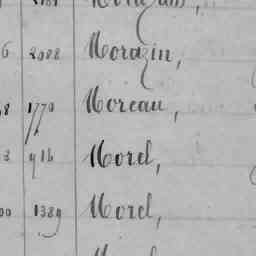 6 2088 Morazin,
8 1770 Moreau,
3 916 Morel,
00 1389 Morel,